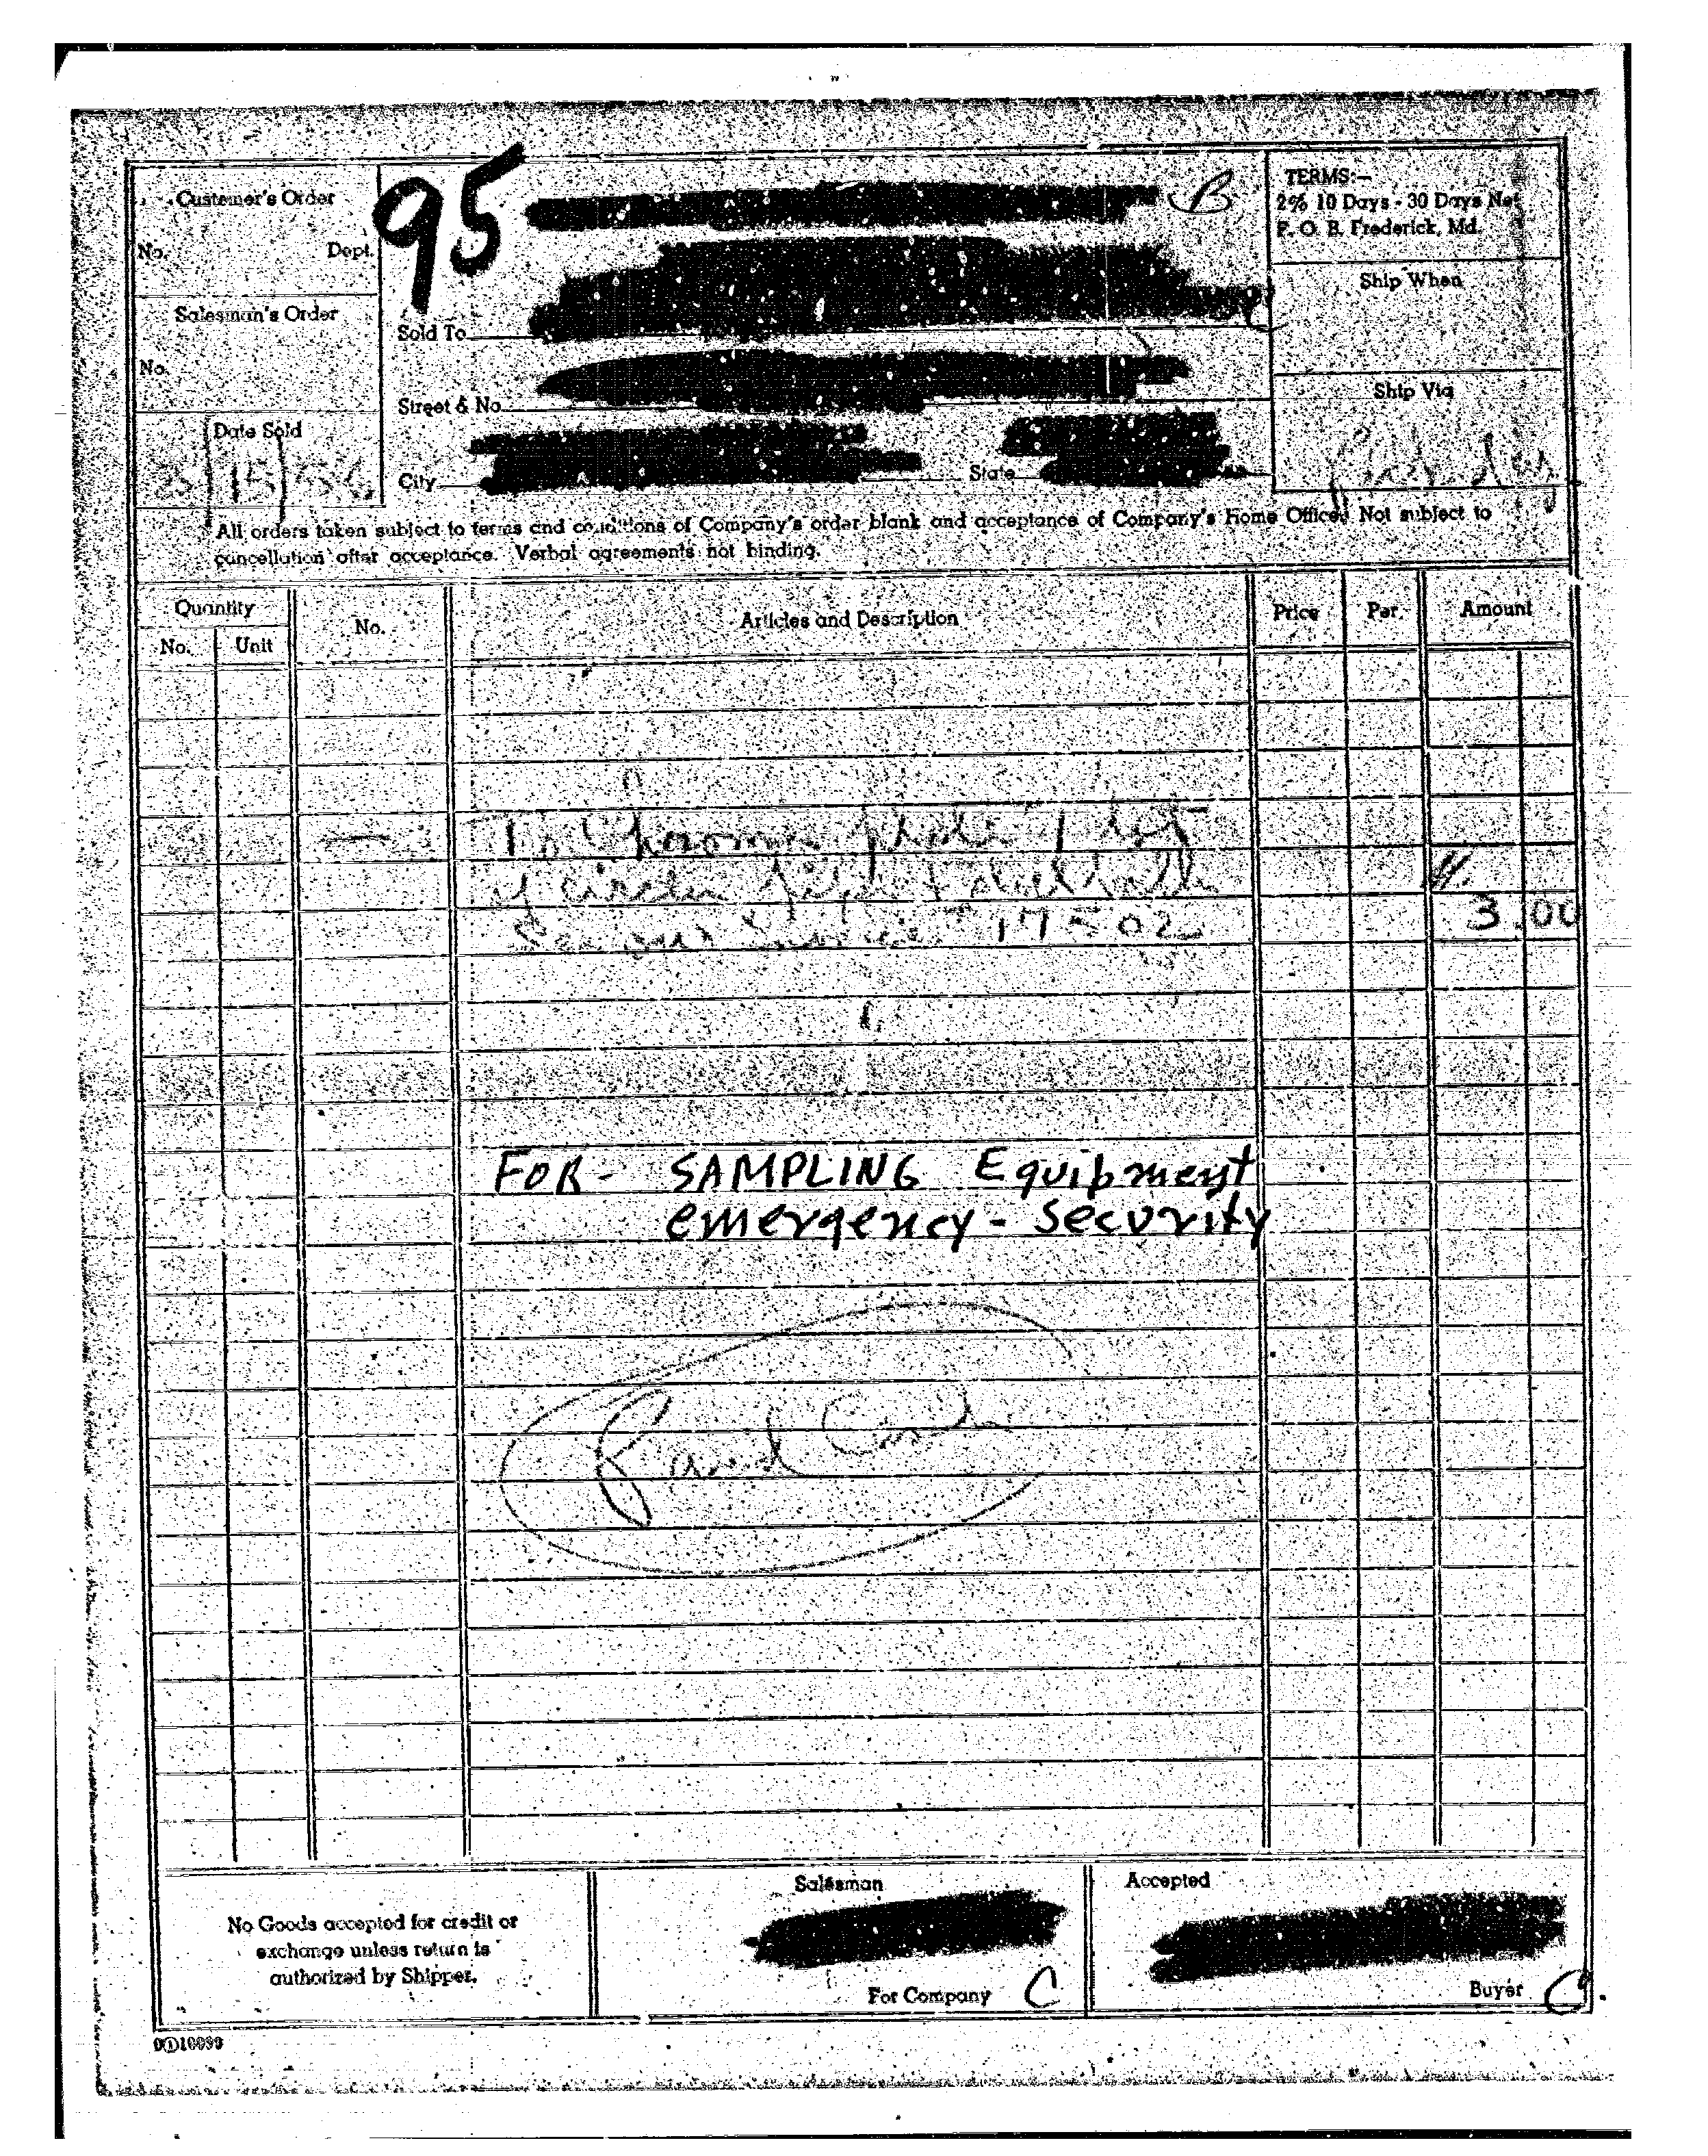 95
B
Customer's Order
No. Dept.
Salesman's Order
No.
Date Sold
15
Sold To
C
Street & No.
City State
TERMS:—
2% 10 Days - 30 Days Net
F. O. B. Frederick, Md.
Ship When
Ship Via
All orders taken subject to terms and conditions of Company's order blank and acceptance of Company's Home Office. Not subject to
cancellation after acceptance. Verbal agreements not binding.
Quantity
No. Unit
No.
Articles and Description
Price
Per
Amount
1 set
of
17502
3.00
FOR - SAMPLING Equipment
emergency - security
Paid Cash
No Goods accepted for credit or
exchange unless return is
authorized by Shipper.
Salesman
For Company C
Accepted
Buyer C